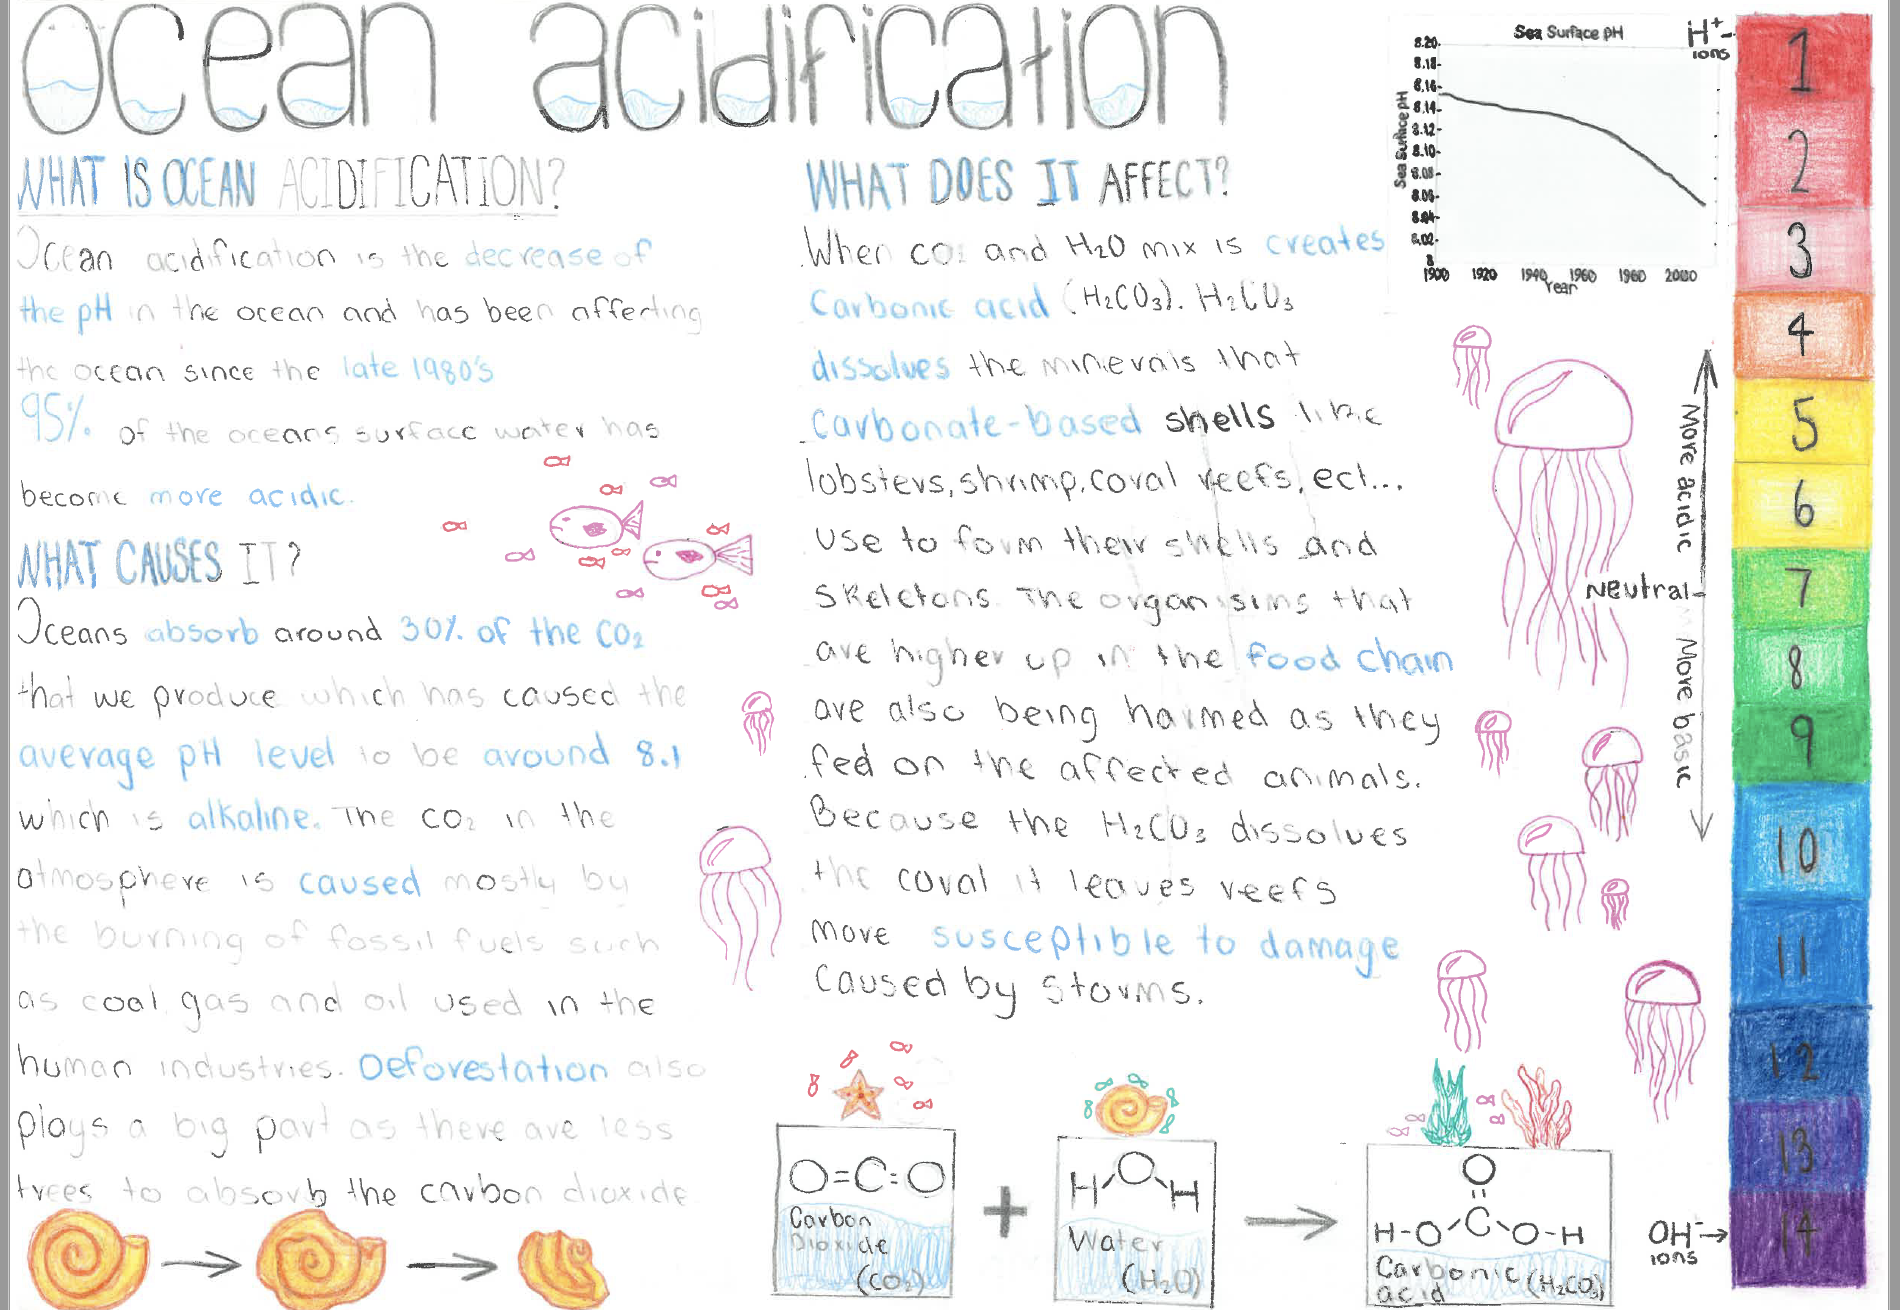 Ocean acidification
WHAT IS OCEAN ACIDIFICATION?
Ocean acidification is the decrease of
the pH in the ocean and has been affecting
the ocean since the late 1980's
95% of the oceans surface water has
become more acidic.
WHAT CAUSES IT?
Oceans absorb around 30% of the CO₂
that we produce which has caused the
average pH level to be around 8.1
which is alkaline. The CO₂ in the
atmosphere is caused mostly by
the burning of fossil fuels such
as coal, gas and oil used in the
human industries. Deforestation also
plays a big part as there are less
trees to absorb the carbon dioxide
WHAT DOES IT AFFECT?
When CO₂ and H₂O mix is creates
Carbonic acid (H₂CO₃). H₂CO₃
dissolves the minerals that
carbonate-based shells like
lobsters, shrimp, coral reefs, ect...
use to form their shells and
skeletons. The organisims that
are higher up in the food chain
are also being harmed as they
fed on the affected animals.
Because the H₂CO₃ dissolves
the coral it leaves reefs
more susceptible to damage
caused by storms.
O=C=O
Carbon
Dioxide
(CO₂)
+
H O H
Water
(H₂O)
O
H-O C O-H
Carbonic (H₂CO₃)
acid
Sea Surface pH
Sea Surface pH
8.20
8.18
8.16
8.14
8.12
8.10
8.08
8.06
8.04
8.02
8
1900 1920 1940 1960 1980 2000
Year
H⁺
ions
More acidic
Neutral
More basic
OH⁻
ions
1
2
3
4
5
6
7
8
9
10
11
12
13
14